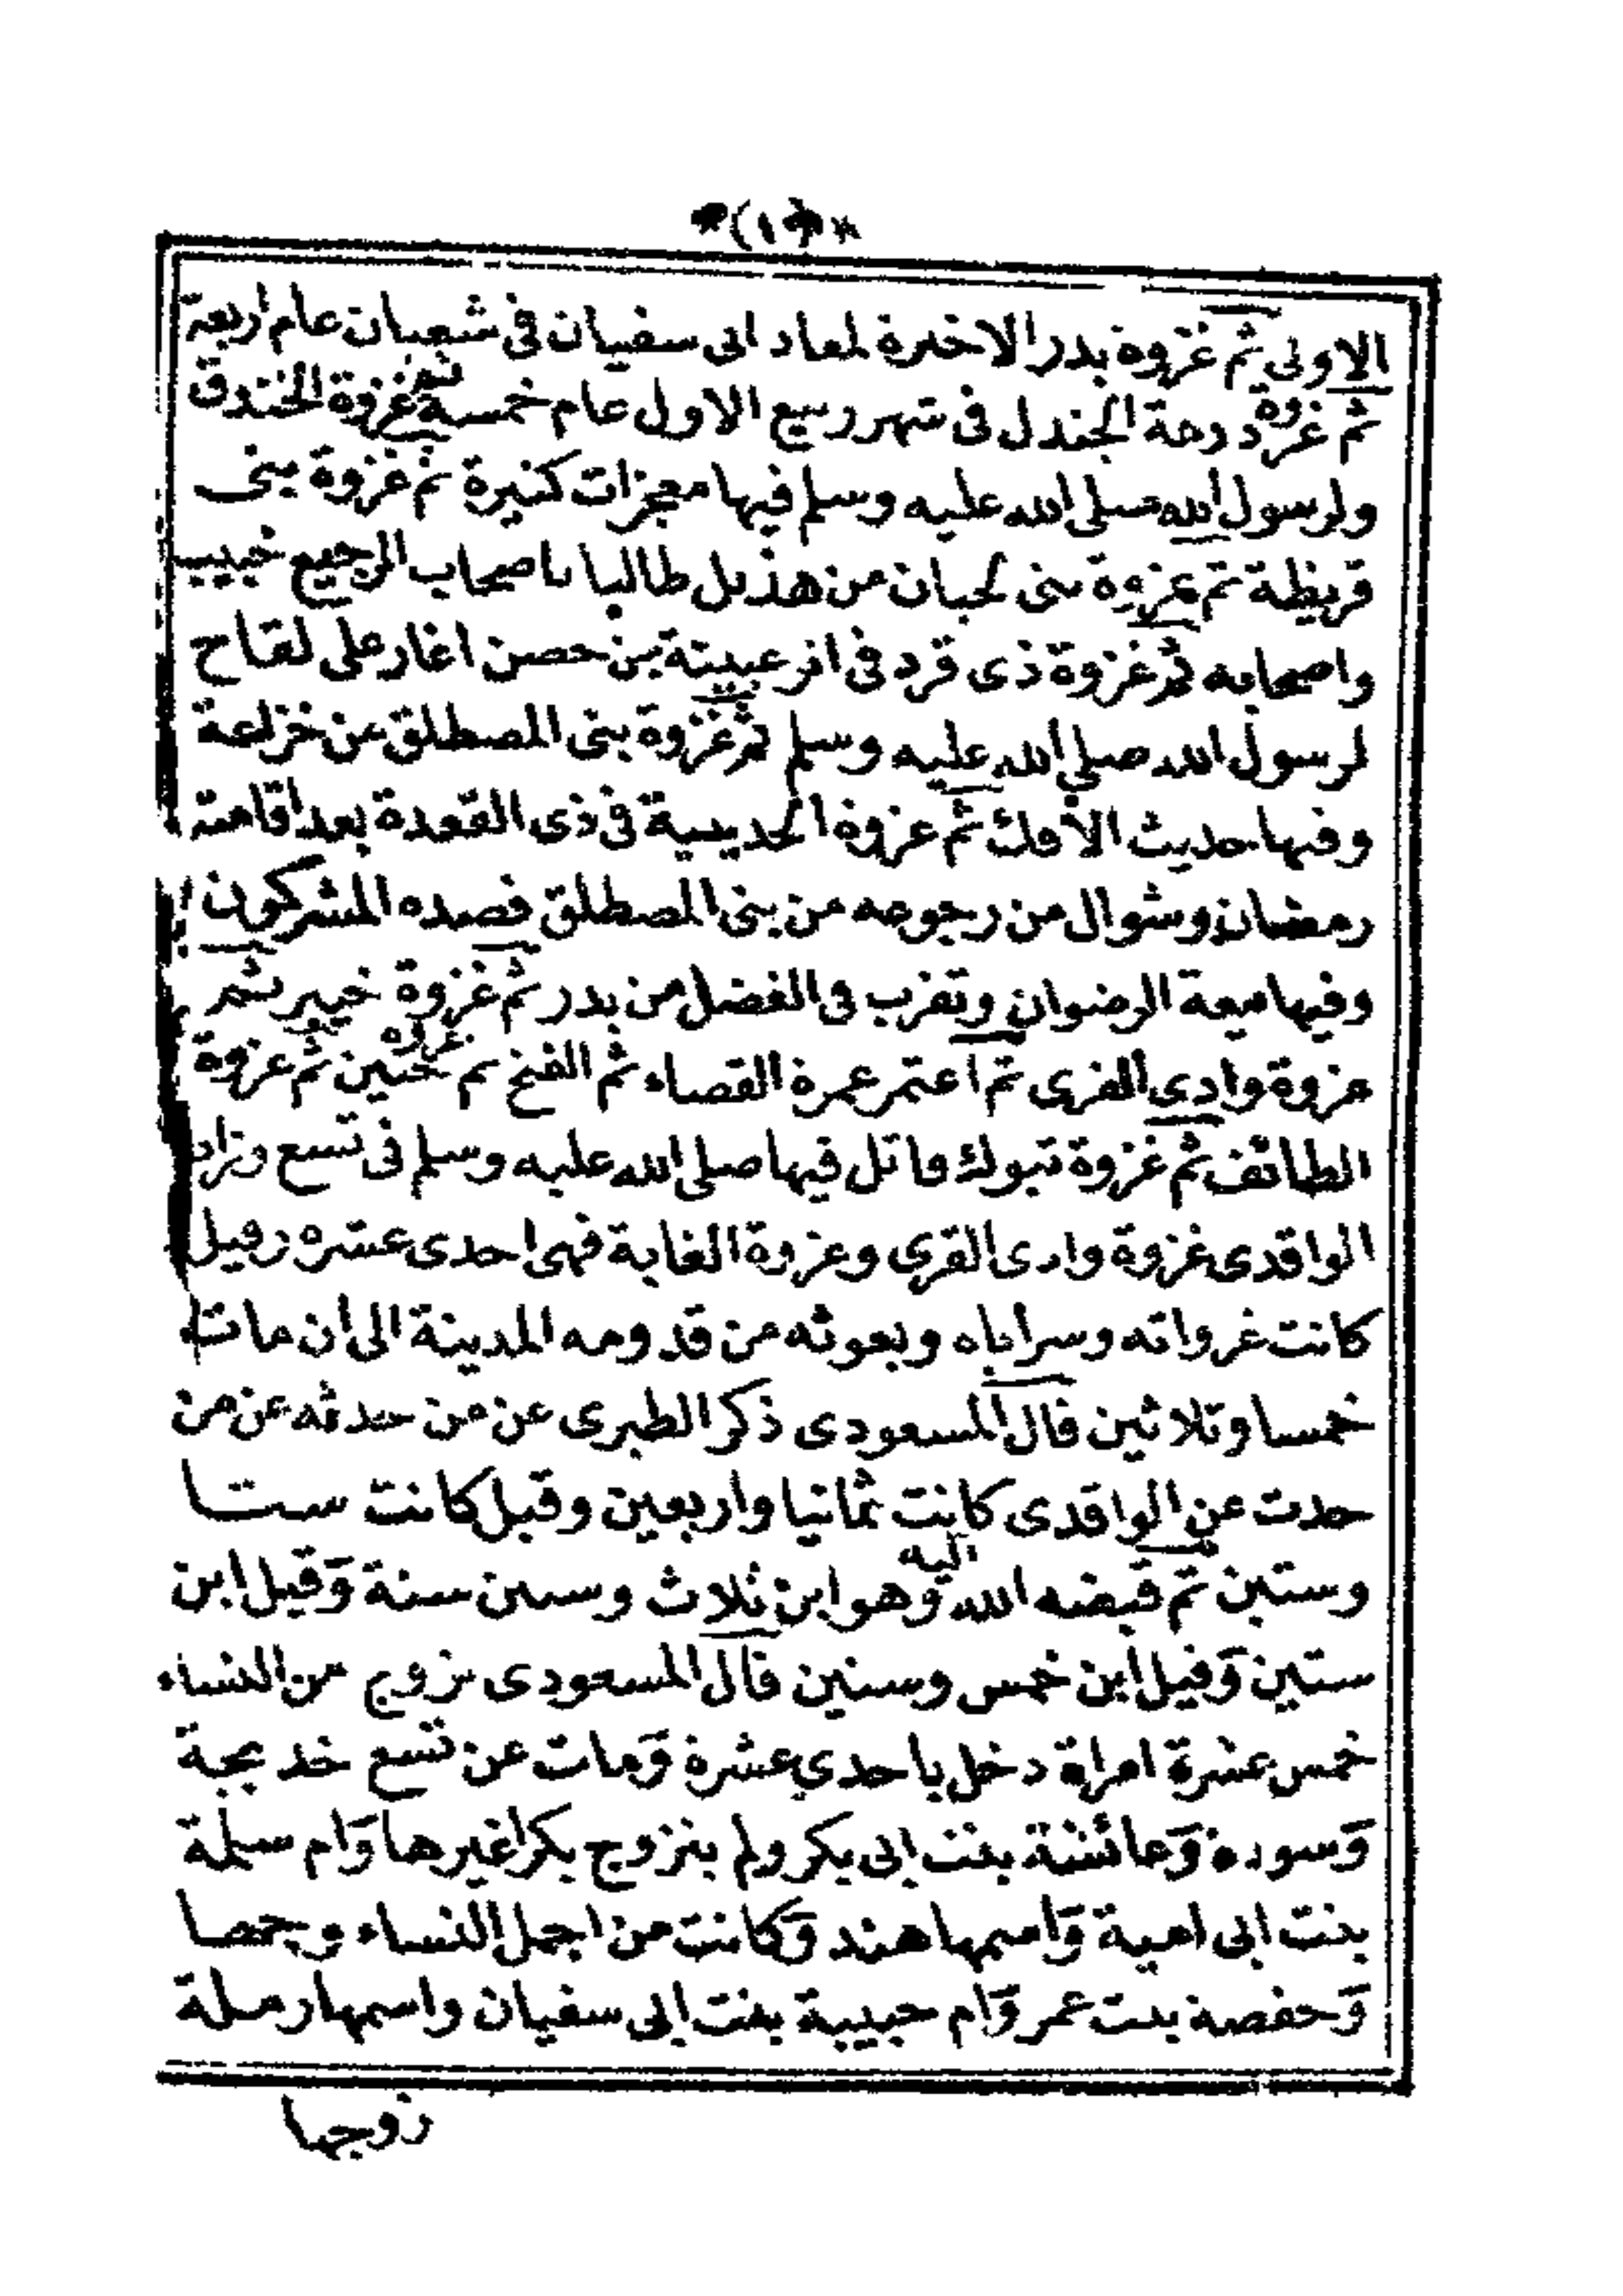 الاولى ثم غزوة بدر الاخيرة لمعاد ابى سفيان فى شعبان عام اربعة
ثم غزوة دومة الجندل فى شهر ربيع الاول عام خمسة ثم غزوة الخندق
ولرسول الله صلى الله عليه وسلم فيها معجزات كثيرة ثم غزوة بنى
قريظة ثم غزوة بنى لحيان من هذيل طالبا باصحاب الرجيع خبيب
واصحابه ثم غزوة ذى قرد فى اثر عيينة بن حصن اغار على لقاح
لرسول الله صلى الله عليه وسلم ثم غزوة بنى المصطلق من خزاعة
وفيها حديث الافك ثم غزوة الحديبية فى ذى القعدة بعد اقامته
رمضان وشوال من رجوعه من بنى المصطلق فصده المشركون
وفيها بيعة الرضوان وتقرب فى الفضل من بدر ثم غزوة خيبر ثم
غزوة وادى القرى ثم اعتمر عمرة القضاء ثم الفتح ثم غزوة حنين ثم غزوة
الطائف ثم غزوة تبوك قاتل فيها صلى الله عليه وسلم فى تسع وزاد
الواقدى غزوة وادى القرى وغزوة الغابة فهى احدى عشره وقيل
كانت غزواته وسراياه وبعوثه من قدومه المدينة الى ان مات
خمسا وثلاثين قال المسعودى ذكر الطبرى عن من حدثه عن من
حدث عن الواقدى كانت ثمانيا واربعين وقيل كانت ستا
وستين ثم قبضه الله اليه وهو ابن ثلاث وستين سنة وقيل ابن
ستين وقيل ابن خمس وستين قال المسعودى تزوج من النساء
خمس عشرة امراة دخل باحدى عشرة ومات عن تسع خديجة
وسودة وعائشة بنت ابى بكر ولم يتزوج بكرا غيرها وام سلمة
بنت ابى امية واسمها هند وكانت من اجمل النساء وجها
وحفصة بنت عمر وام حبيبة بنت ابى سفيان واسمها رملة
زوجها